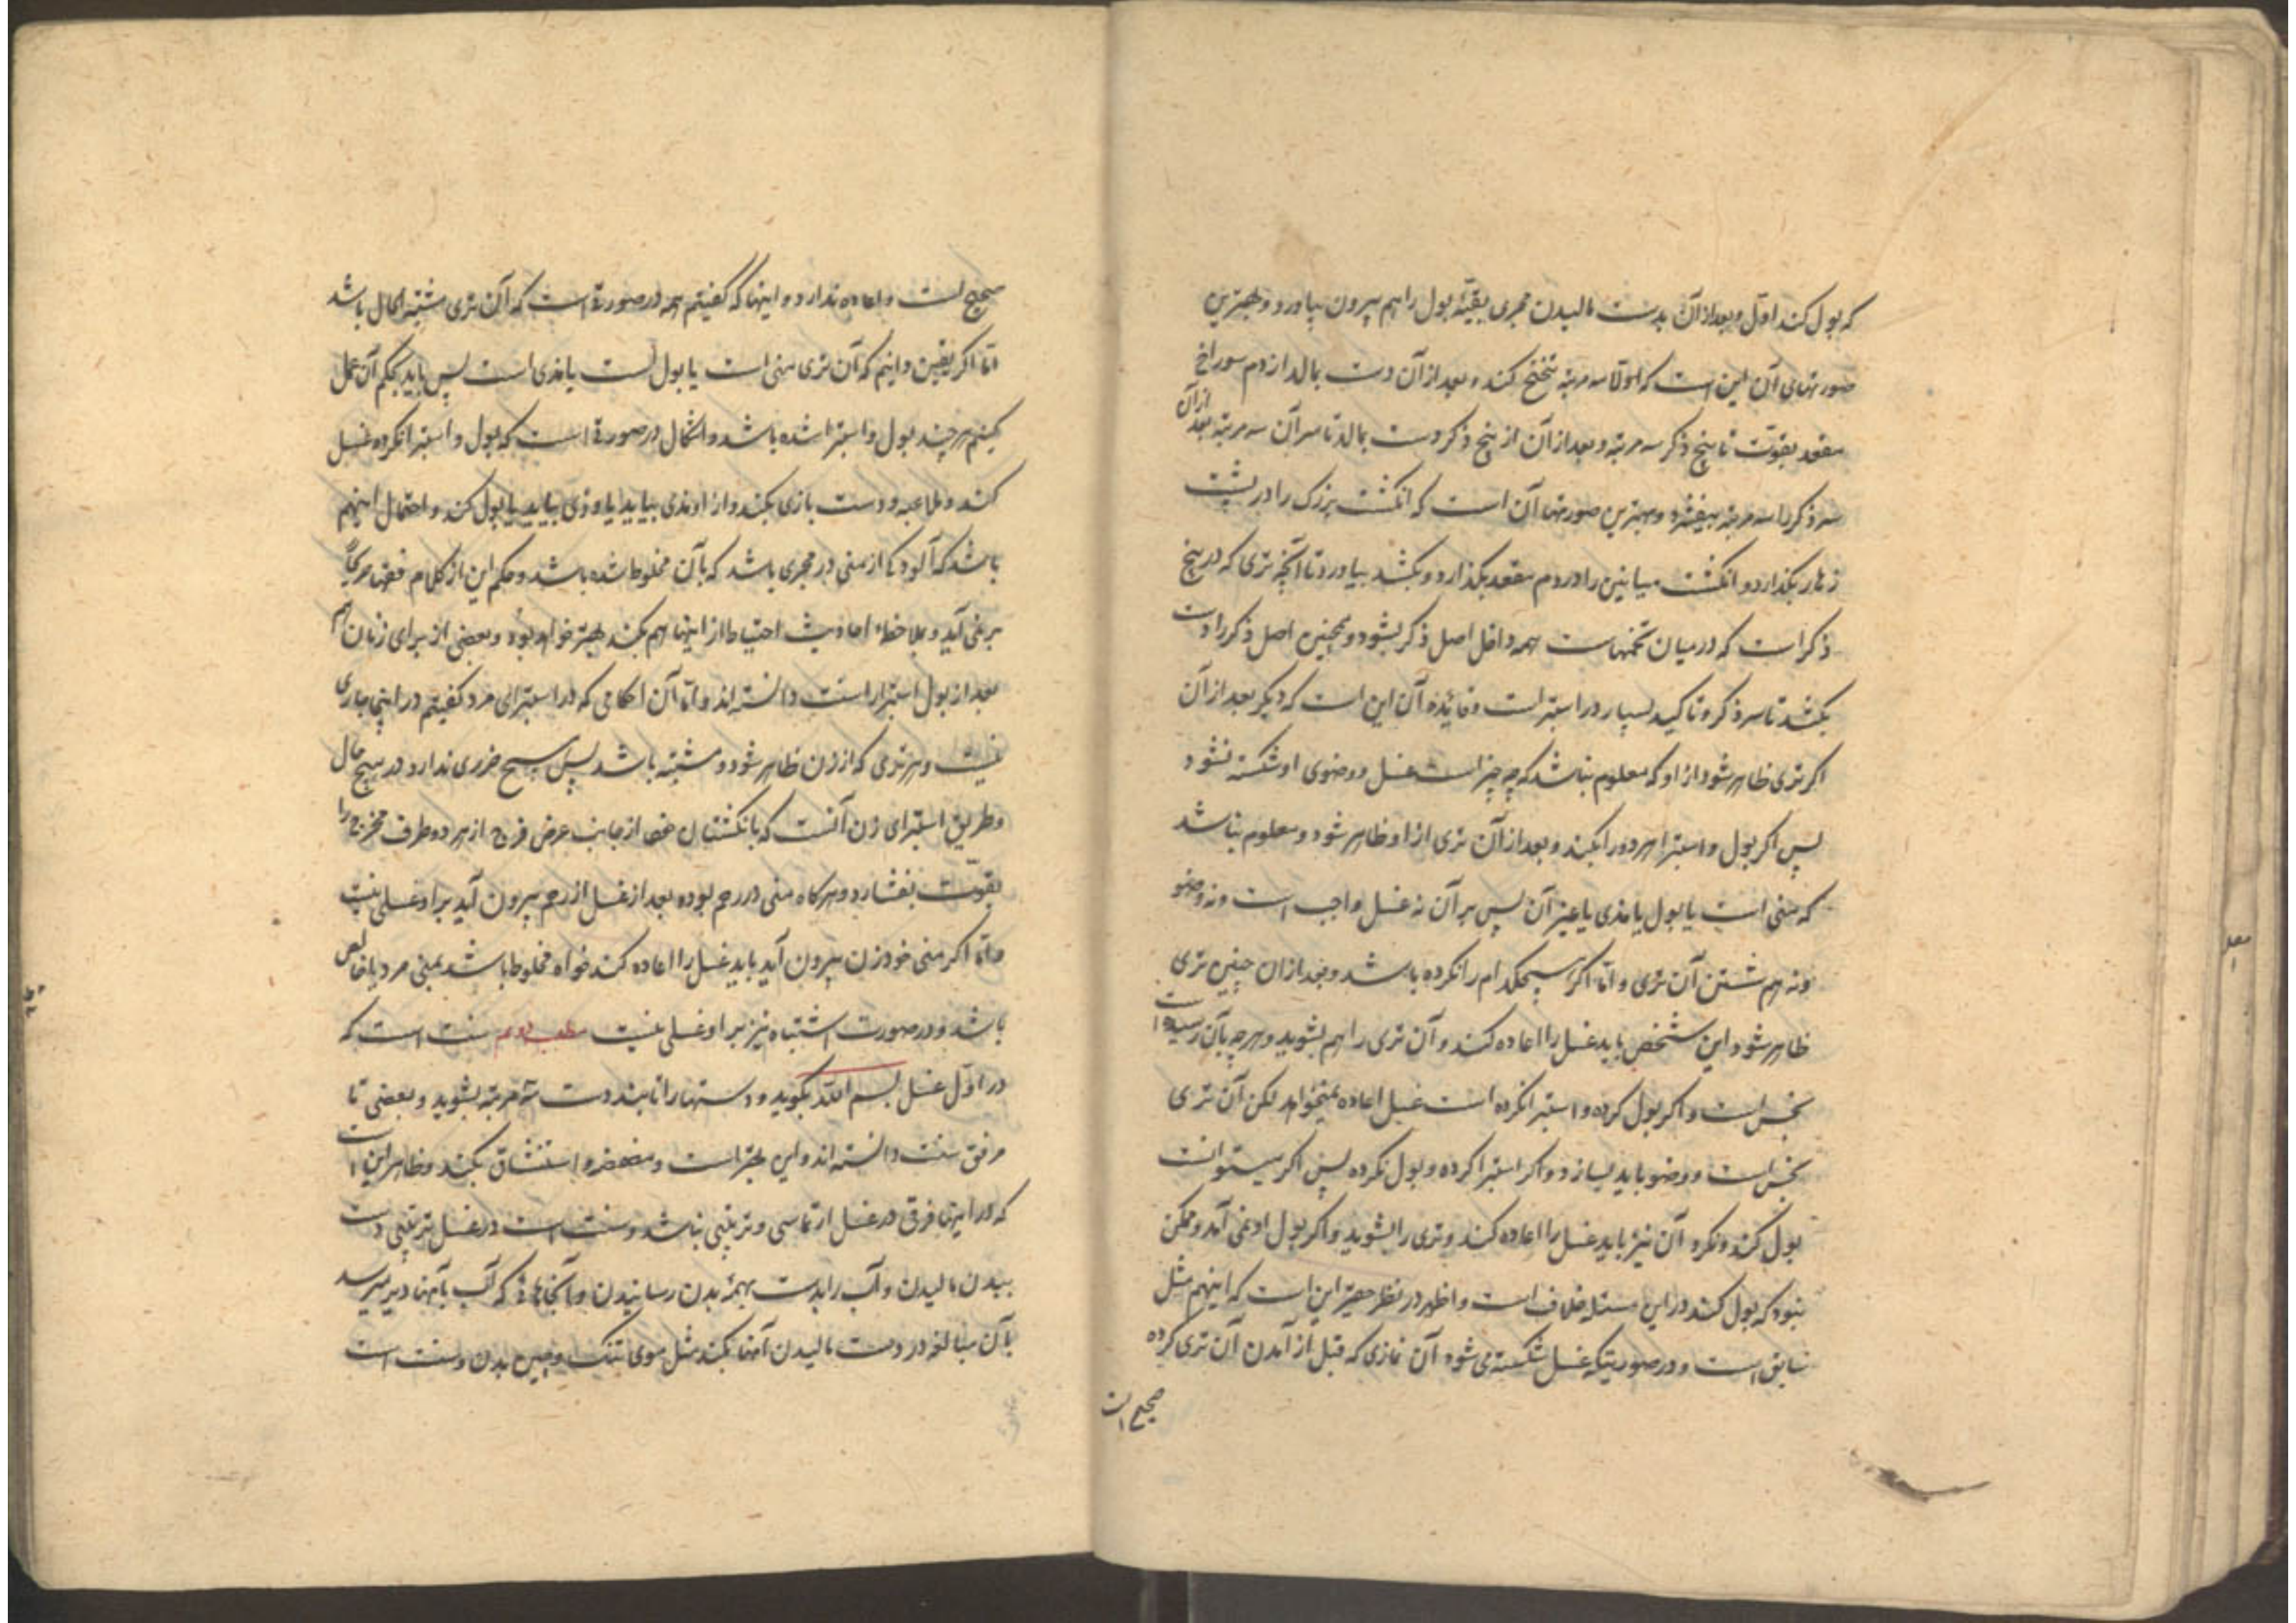 که بول کند اول و بعد از آن بدست مالیدن مجری بقیهٔ بول را هم بیرون بیاورد و بهترین
صورتهای آن این است که اولا سه مرتبه تنحنح کند و بعد از آن دست بمالد از دم سوراخ
مقعد بقوت تا بیخ ذکر سه مرتبه و بعد از آن از بیخ ذکر دست بمالد تا سر آن سه مرتبه بعد از آن
سر ذکر را سه مرتبه بیفشرد و بهترین صورتها آن است که انکشت بزرک را در پشت
زهار بکذارد و انکشت میانین را در دم مقعد بکذارد و بکشد بیاورد تا آنچه تری که در بیخ
ذکر است که در میان تخمهاست همه داخل اصل ذکر بشود و همچنین اصل ذکر را دست
بکشد تا سر ذکر و تاکید بسیار در استبراست و فائده آن این است که دیکر بعد از آن
اکر تری ظاهر شود از او که معلوم نباشد که چه چیز است غسل و وضوی او شکسته نشود
پس اکر بول و استبرا هر دو را بکند و بعد از آن تری از او ظاهر شود و معلوم نباشد
که منی است یا بول یا مذی یا غیر آن پس بر آن نه غسل واجب است و نه وضو
و نه هم شستن آن تری و اما اکر هیچکدام را نکرده باشد و بعد از ان چنین تری
ظاهر شود این شخص باید غسل را اعاده کند و آن تری را هم بشوید و هر چه بآن رسیده است
نجس است و اکر بول کرده و استبرا نکرده است غسل اعاده نمیخواهد لکن آن تری
نجس است و وضو باید بسازد و اکر استبرا کرده و بول نکرده پس اکر میتوانست
بول کند و نکرد آن نیز باید غسل را اعاده کند و تری را بشوید و اکر بول او نمی آمد و ممکن
نبود که بول کند در این مسئله خلاف است و اظهر در نظر حقیر این است که اینهم مثل
سابق است و در صورتیکه غسل شکسته می شود آن نمازی که قبل از آمدن آن تری کرده
صحیح است
صحیح است و اعاده ندارد و اینها که کفتیم همه در صورتی است که آن تری مشتبه الحال باشد
اما اکر یقین دانیم که آن تری منی است یا بول است یا مذی است پس باید بحکم آن عمل
کنیم هر چند بول و استبرا شده باشد و اشکال در صورتی است که بول و استبرا نکرده غسل
کند و ملاعبه و دست بازی بکند و از او مذی بیاید یا وذی بیاید یا بول کند و احتمال اینهم
باشد که آلودکی از منی در مجری باشد که بآن مخلوط شده باشد و حکم این از کلام فقها صریحاً
بر نمی آید و بملاحظهٔ احادیث احتیاط از اینها هم بکند بهتر خواهد بود و بعضی از برای زنان هم
بعد از بول استبرا را سنت دانسته اند و اما آن احکامی که در استبرای مرد کفتیم در اینجا جاری
نیست و هر تری که از زن ظاهر شود و مشتبه باشد پس هیچ ضرری ندارد در هیچ حال
و طریق استبرای زن آنست که بانکشتان خود از جانب عرض فرج از هر دو طرف مخرج را
بقوت بفشارد و هرکاه منی در رحم بوده بعد از غسل از رحم بیرون آید بر او غسلی نیست
و اما اکر منی خود زن بیرون آید باید غسل را اعاده کند خواه مخلوط باشد بمنی مرد یا خالص
باشد و در صورت اشتباه نیز بر او غسلی نیست مطلب دویم سنت است که
در اول غسل بسم الله بکوید و دستها را تا بند دست سه مرتبه بشوید و بعضی تا
مرفق سنت دانسته اند و این بهتر است و مضمضه و استنشاق بکند و ظاهر این است
که در اینها فرقی در غسل ارتماسی و ترتیبی نباشد و سنت است در غسل ترتیبی دست
ببدن مالیدن و آب را بدست بهمهٔ بدن رسانیدن و آنجاهائی که آب بآنها دیر میرسد
بآن مبالغه در دست مالیدن آنها بکند مثل موی تنک و چین بدن و سنت است